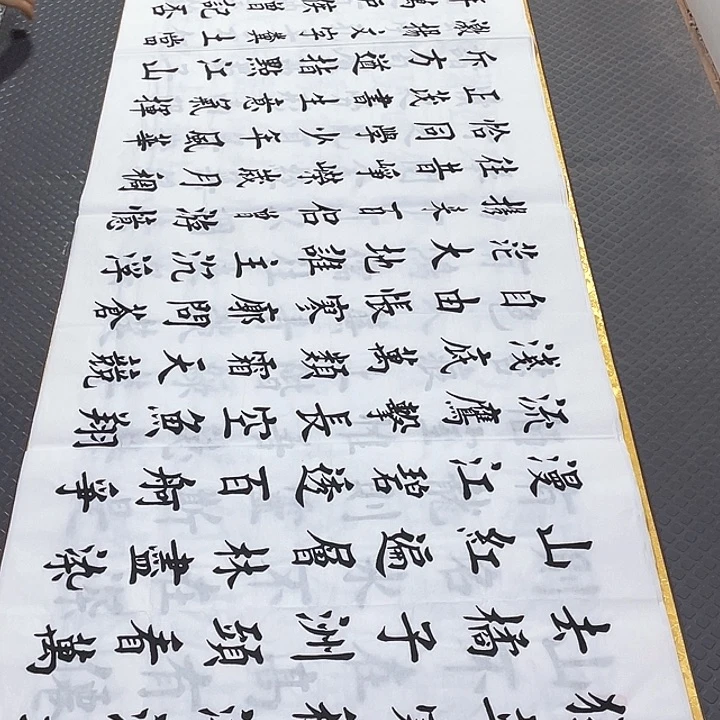 去橘子洲頭看萬
山紅遍層林盡染
漫江碧透百舸爭
流鷹擊長空魚翔
淺底萬類霜天競
自由悵寥廓問蒼
茫大地誰主沉浮
攜來百侶曾游憶
往昔崢嶸歲月稠
恰同學少年風華
正茂書生意氣揮
斥方遒指點江山
激揚文字糞土當
曾記否